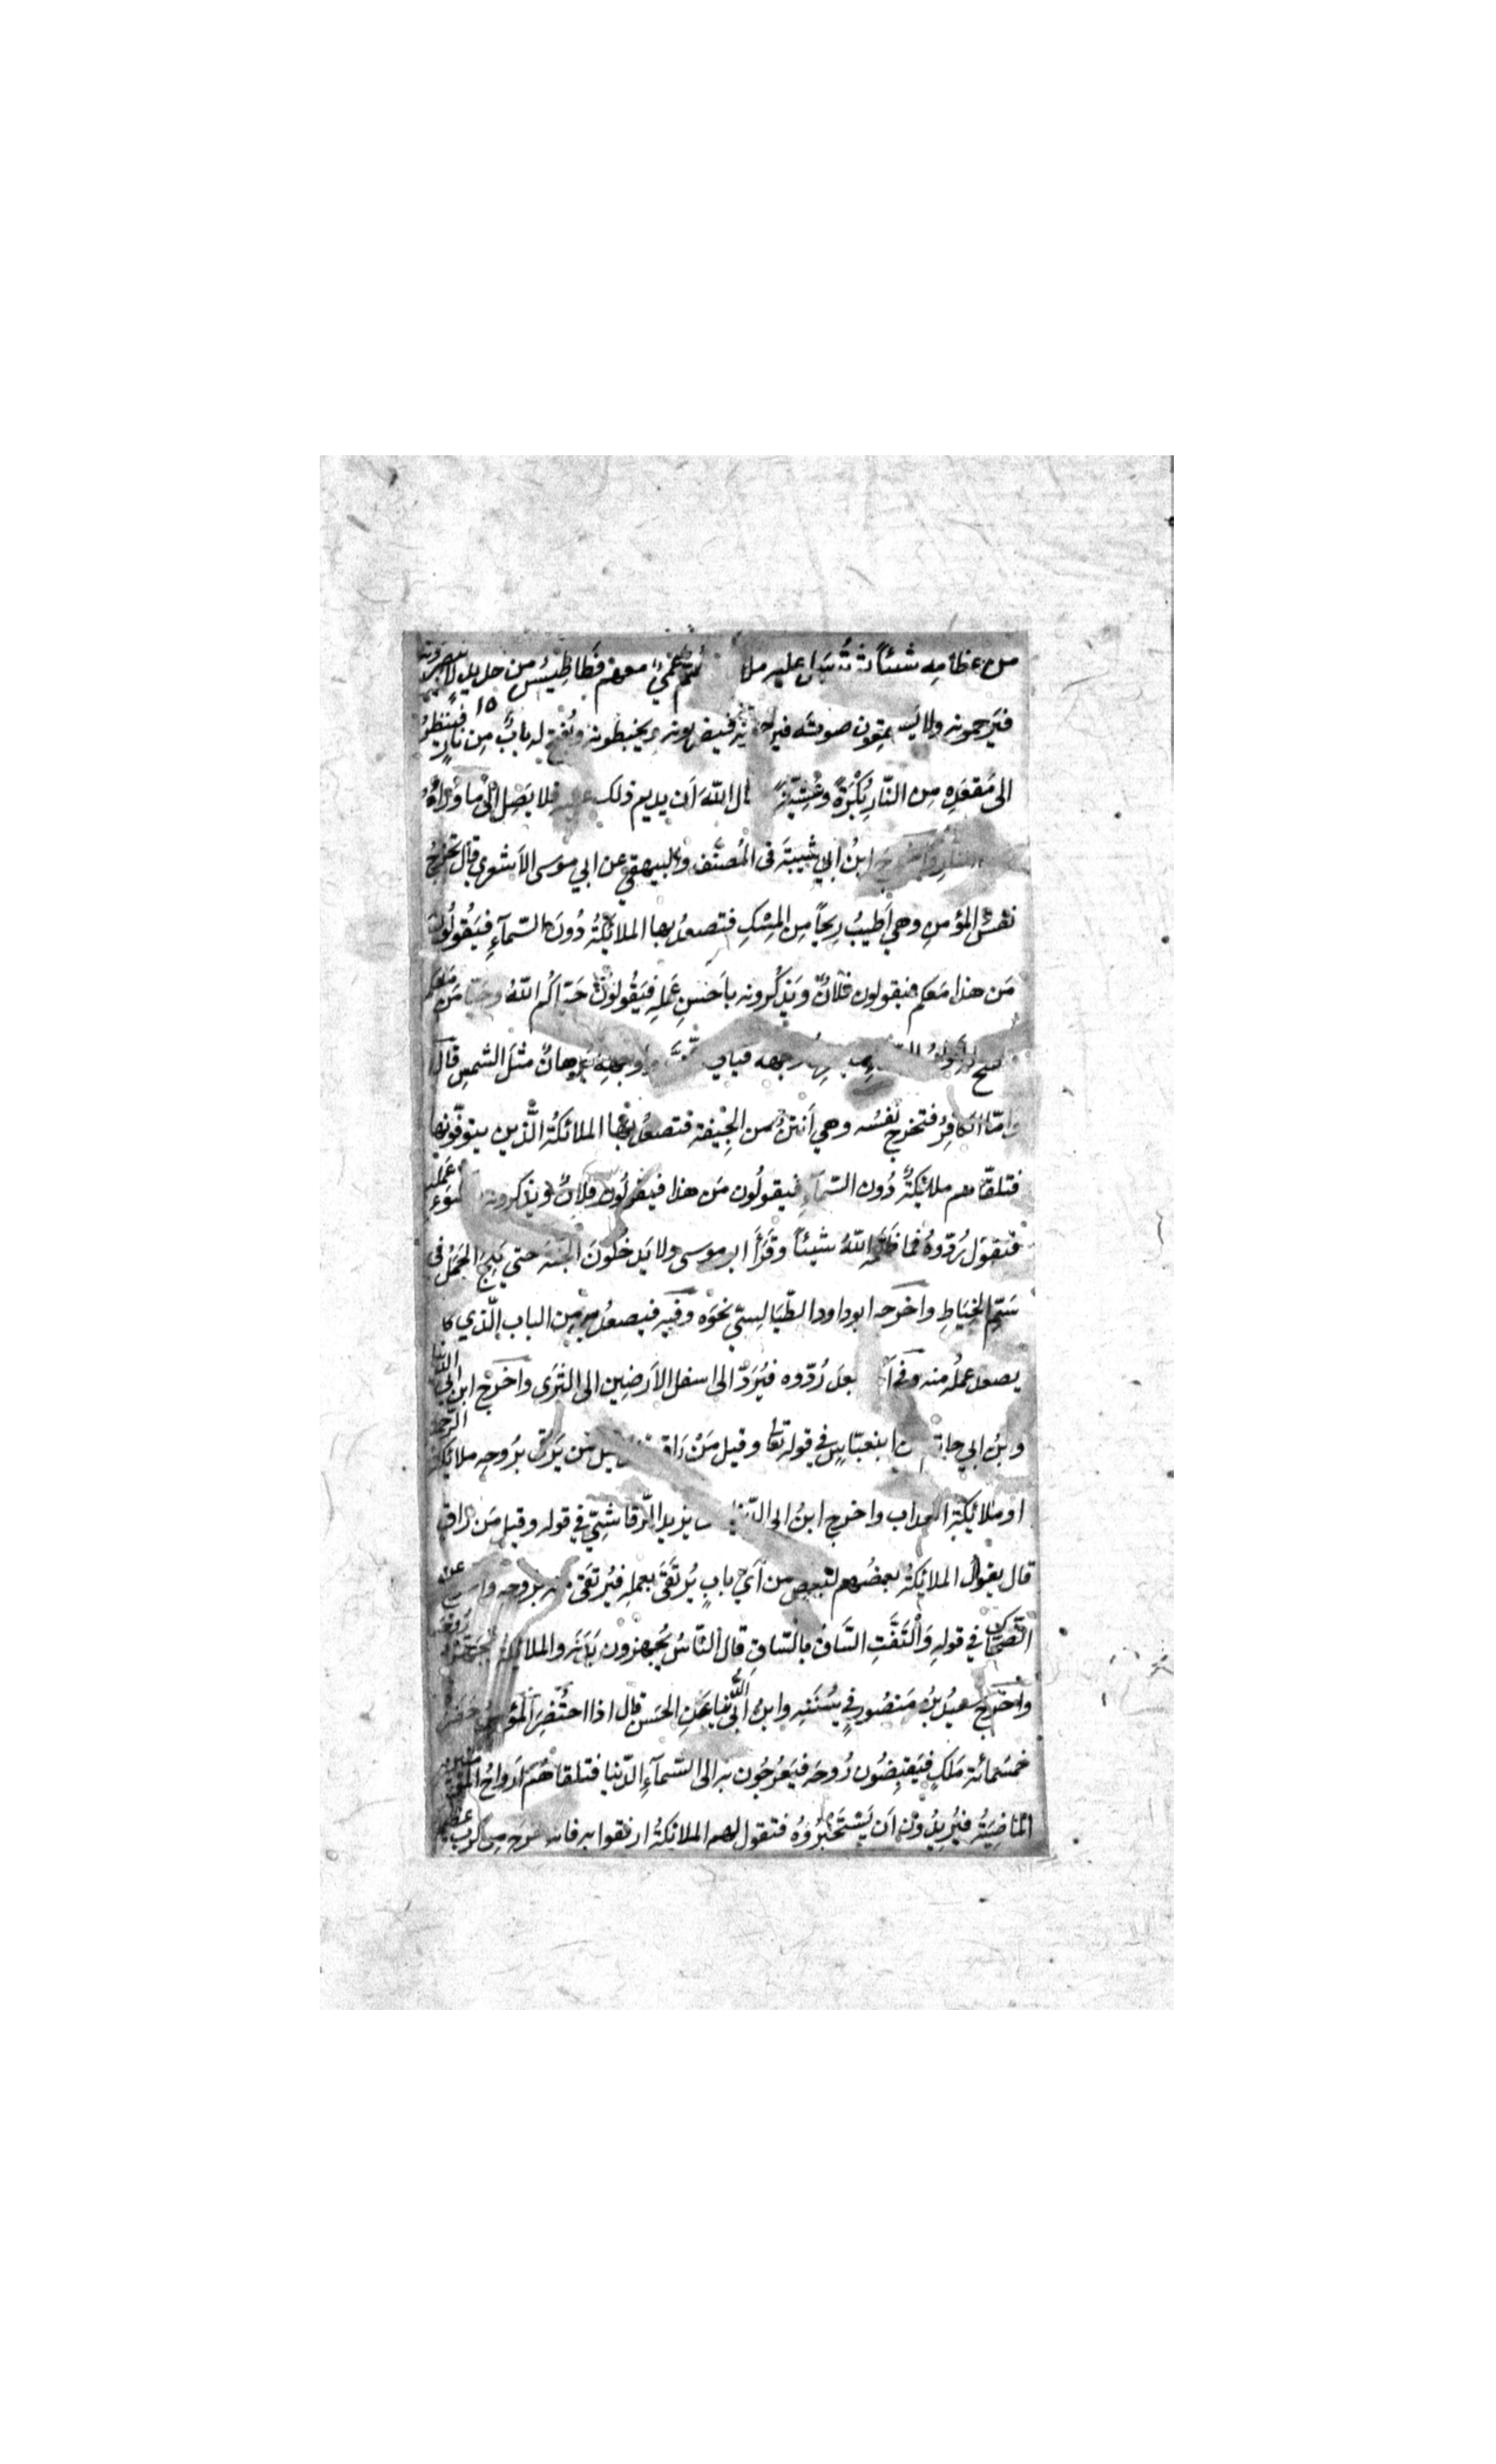 من عظامه شيئاً ثم تُرسل عليه ملا صُمٌّ عُمْيٌ معهم فَطَاطِيسُ من حديد لا يبصرونه
فيَرحمونه ولا يَسمعون صوتَه فيرحمونه فيضربونه ويخبطونه ويُفتح له بابٌ مِن نارٍ فينظرُ
الى مَقعَدِه مِن النّارِ بُكْرَةً وعَشِيّةً ال اللّهَ أن يديم ذلك عليه فلا يَصِل الى ما وراءَهُ
النارِ وأخرج ابنُ ابي شَيبةَ فى المُصنّف والبيهقي عن ابي موسى الاشعري قال تخرجُ
نفسُ المؤمنِ وهي أطيبُ ريحاً مِن المِسْكِ فتصعدُ بها الملائكةُ دُونَ السّمآءِ فيَقُولُونَ
مَن هذا مَعَكم فيقولون فلانٌ ويَذكُرونه بأحسنِ عَمَلِه فيَقُولُونَ حَيّاكُم اللّهُ وحَيّا مَن مَعَكم
وجهه وجهِه بُرهانٌ مثلَ الشمسِ قال
وامّا الكافِرُ فتخرج نفسُه وهي أنتنُ من الجِيْفةِ فتصعدُ بها الملائكةُ الّذين يتوفّونها
فتلقّاهم ملائكةٌ دُون السّمآءِ فيقولُون مَن هذا فيقولُون فلانٌ ويذكرونه باسوَءِ عَمَلِه
فتقول رُدّوهُ فما ظَلَمَه اللّهُ شيئاً وقَرَأ ابو موسى ولا يَدخُلُونَ الجنّةَ حتى يَلِجَ الجَمَلُ فى
سَمّ الخِيَاطِ واخرجه ابوداود الطّيَالِسيّ نحوَه وفيه فيصعدُ به مِن الباب الّذي كا
يصعد عملُه منه وفى آ بعدَ رُدّوه فيُرَدّ الى اسفل الاَرضِين الى الثرَى واخرج ابن ابى الدنيا
وابنُ ابي حاتم عن ابنعبّاسٍ في قوله تعالى وقيل مَنْ رَاقٍ قيل مَن يَرقٰى برُوحِه ملائكةُ الرّحمة
او ملائكة العذاب واخرج ابنُ ابى الدّنيا عن يزيد الرّقاشيّ في قوله وقيل مَن راقٍ
قال يقول الملائكةُ بعضُهم لبعضٍ من أيّ بابٍ يُرتَقَى بعملِه فيُرتقَى فيه بروحه واخرج عن
الضّحّاك في قولِه وَالْتَفَّتِ السّاقُ بالسّاقِ قال النّاسُ يُجهِزون بَدَنَه والملائكةُ يُجَهّزونَ رُوحَه
واخرج سعيدُ بنُ مَنصُورٍ في سُنَنِه وابنُ أبى الدُّنيا عَنِ الحَسَن قال اذا احتُضِرَ المؤمنُ حَضَرَ
خمسُمائة مَلَكٍ فيَقبِضُون رُوحَه فيَعرُجُون به الى السّمآءِ الدّنيا فتلقاهُم أرواحُ المؤمنين
الماضِيَةُ فيُريدُون أن يَستَخبِرُوهُ فتقول لهم الملائكةُ ارفقوا به فانه خرج من كربٍ عظيمٍ